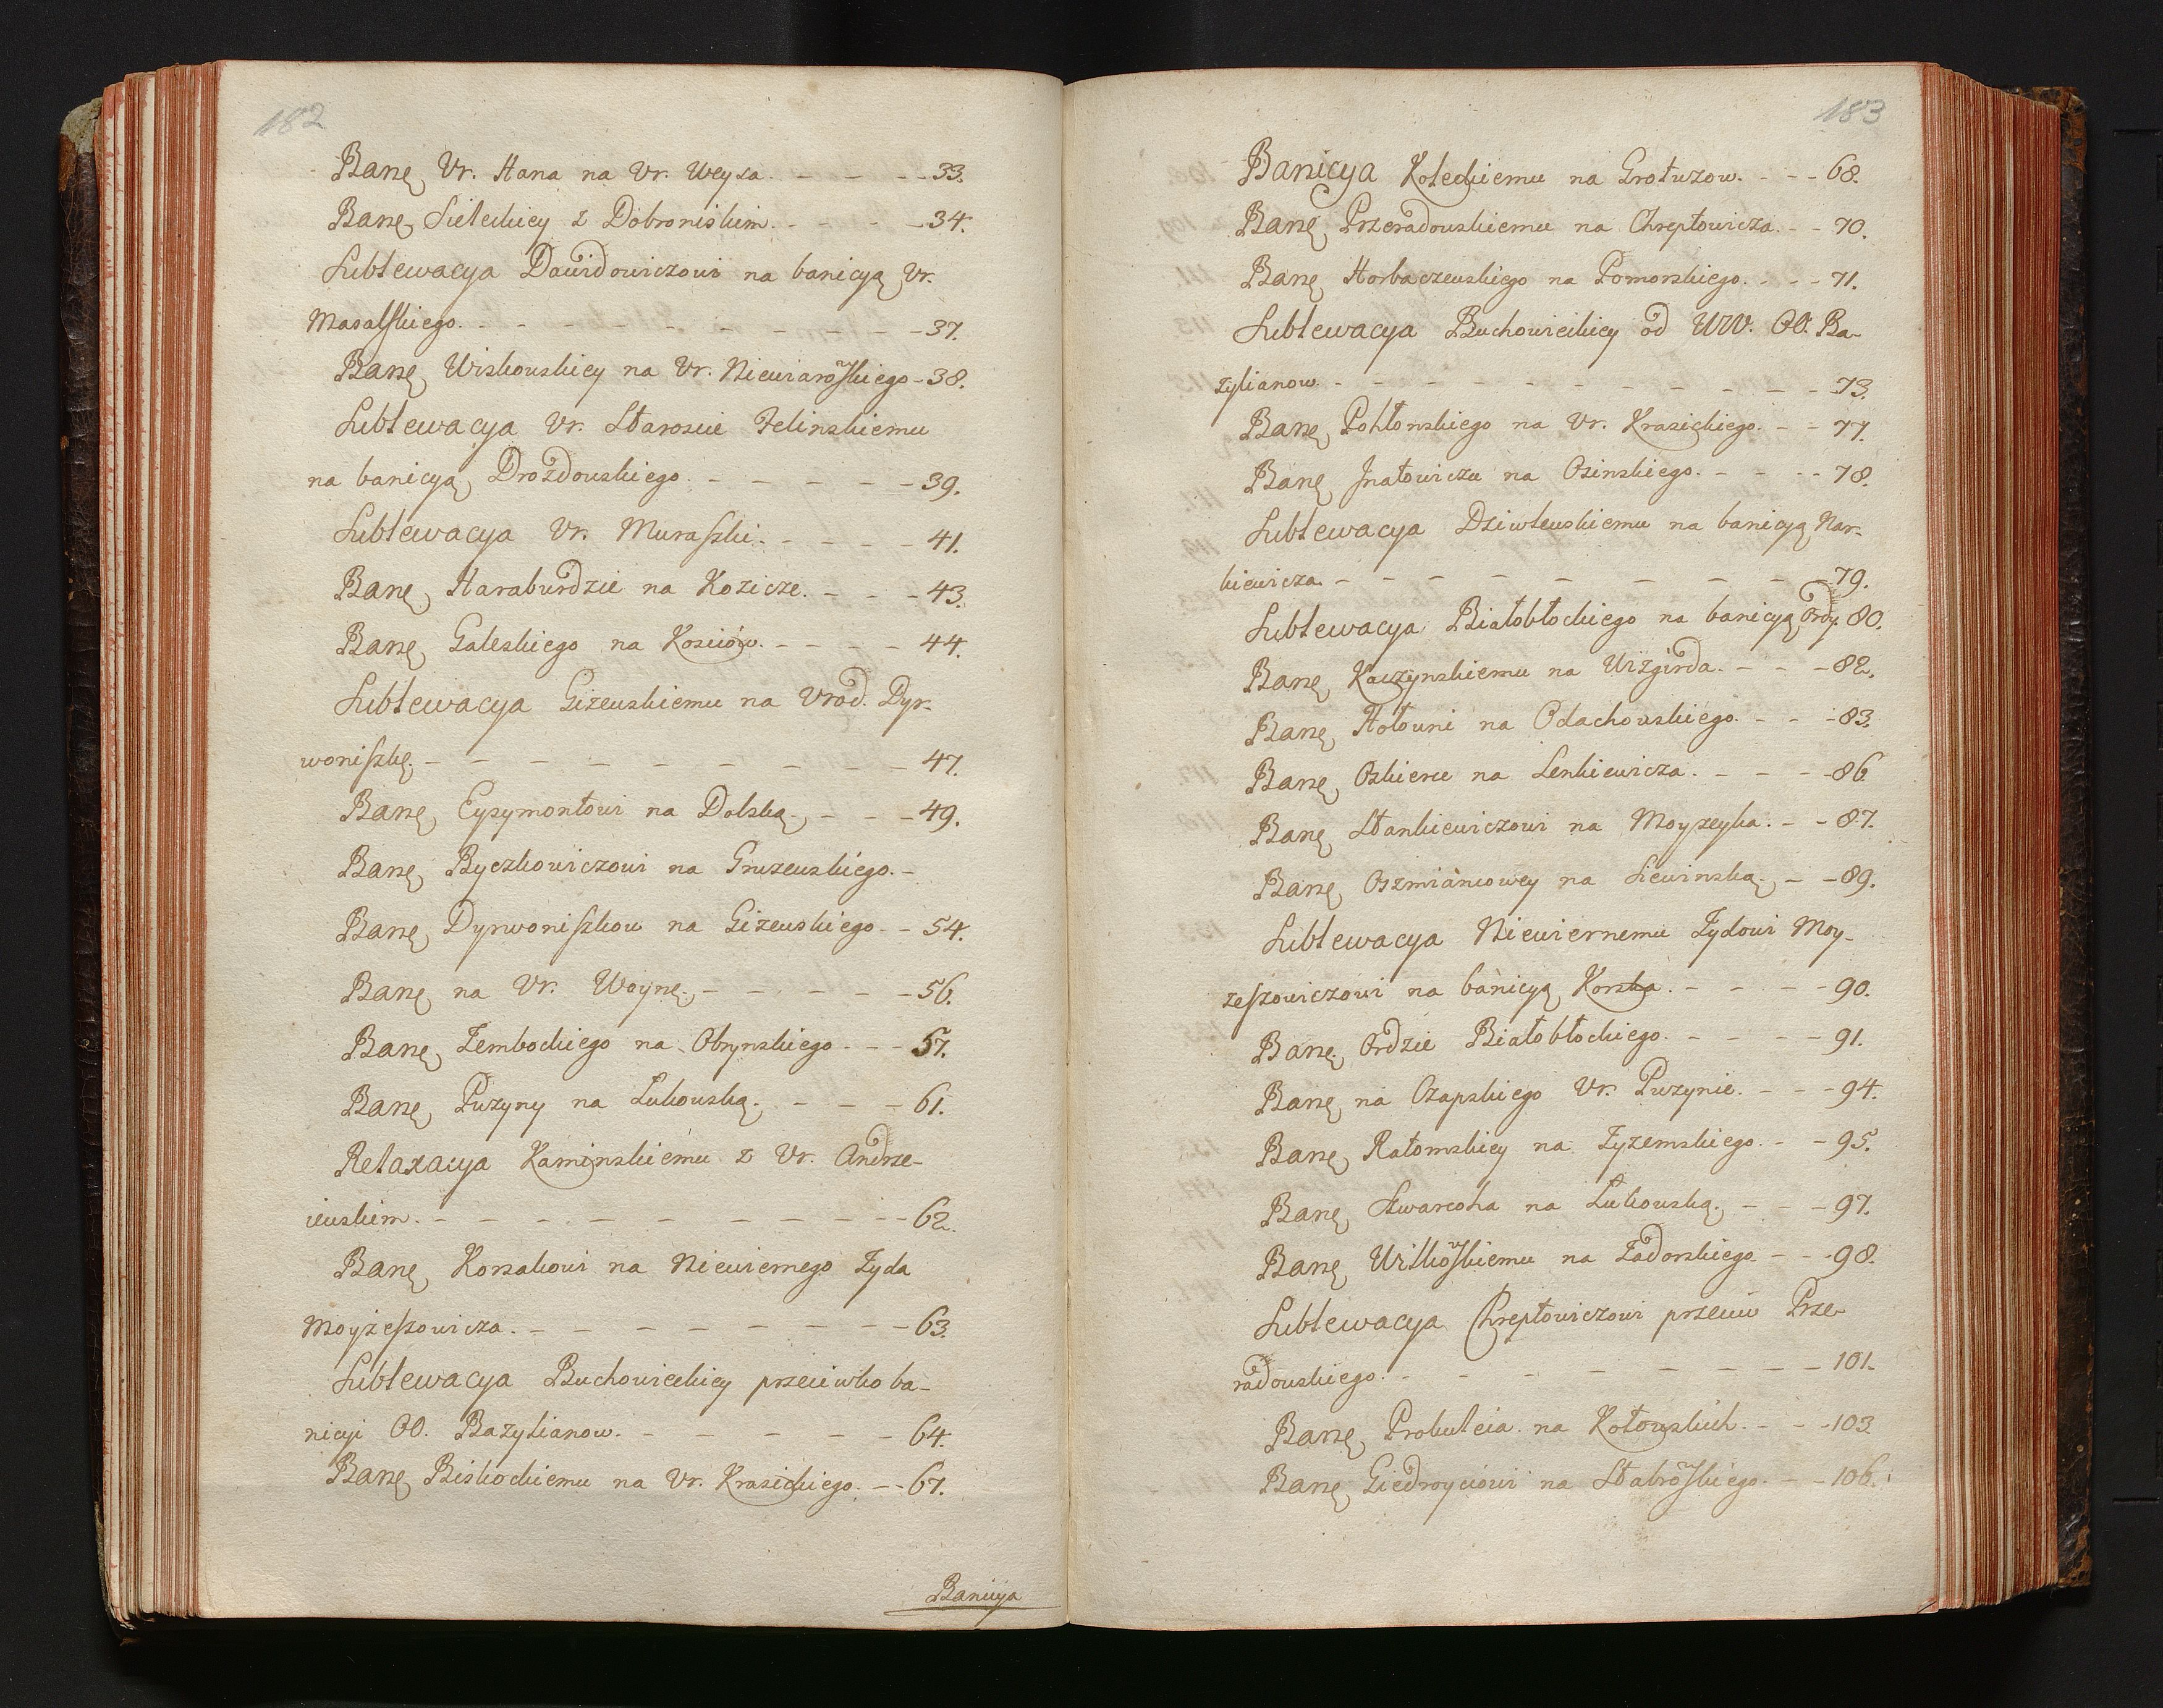 182
Banę, Ur. Hana na Ur. Weyza. - - - - 33.
Banę, Sieleckiey z Dobroniskim. - - - - 34.
Sublewacya Dawidowiczowi na banicyą Ur.
Masalskiego. - - - - - - - - - 37.
Banę, Wiskouskiey na Ur. Niewiarowskiego - 38.
Sublewacya Ur. Staroscie Jelinskiemu
na banicyą, Drozdouskiego. - - - - - 39.
Sublewacya Ur. Muraszki. - - - - 41.
Banę, Haraburdzie na Kozicze. - - - 43.
Banę, Galeskiego na Kosciów. - - - - 44.
Sublewacya Gizeuskiemu na Urod. Dyr-
woniszkę. - - - - - - - - - 47.
Banę, Eysymontowi na Dolską. - - - 49.
Banę, Byczkowiczowi na Gruzeuskiego. -
Banę, Dyrwoniszkow na Gizeuskiego. - - 54.
Banę, na Ur. Woynę. - - - - - 56.
Banę, Zembockiego na Obrynskiego. - - - 57.
Banę, Puzyny na Lukouską. - - - 61.
Relaxacya Kaminskiemu z Ur. Andrze-
ieuskim. - - - - - - - - - 62.
Banę, Korsakowi na Niewiernego Żyda
Moyżeszowicza. - - - - - - - - 63.
Sublewacya Buchowieckiey przeciwko ba-
nicyi OO. Bazylianow. - - - - - 64.
Banę, Biskockiemu na Ur. Krasickiego. - - 67.
Banicya
183
Banicya Koleckiemu na Grotuzow. - - - 68.
Banę, Przeradouskiemu na Chreptowicza. - - 70.
Banę, Horbaczeuskiego na Pomorskiego. - - - 71.
Sublewacya Buchowieckiey od WW. OO. Ba-
zylianow. - - - - - - - - - - 73.
Banę, Pohłonskiego na Ur. Krasickiego. - - 77.
Banę, Jnatowiczu na Osinskiego. - - - - 78.
Sublewacya Dziwleuskiemu na banicyą Nar-
kiewicza. - - - - - - - - - 79.
Sublewacya Białobłockiego na banicyą Ordy. 80.
Banę, Kaczynskiemu na Wizgirda. - - - 82.
Banę, Hołowni na Odachouskiego. - - - 83.
Banę, Oskierce na Lenkiewicza. - - - - 86
Banę, Stankiewiczowi na Moyzeyka. - - 87.
Banę, Oszmiańcowey na Siewinską. - - 89.
Sublewacya Niewiernemu Żydowi Moy-
żeszowiczowi na banicyą Korsaka. - - - - 90.
Banę, Ordzie Białobłockiego. - - - - 91.
Banę, na Czapskiego Ur. Puzynie. - - - 94.
Banę, Ratomskiey na Zyzemskiego. - - 95.
Banę, Skwarcoha na Lukouską. - - - 97.
Banę, Wilkowskiemu na Zadorskiego. - - - 98.
Sublewacya Chreptowiczowi przeciw Prze-
radouskiego. - - - - - - - - 101.
Banę, Prokuleia na Kotowskich. - - - 103
Banę, Giedroyciowi na Stabrowskiego. - - 106.